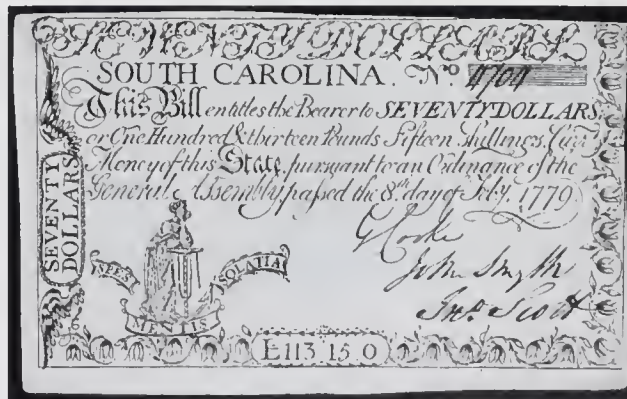 SEVENTY DOLLARS
SOUTH CAROLINA. Nº 4704
This Bill entitles the Bearer to SEVENTY DOLLARS
or One Hundred & thirteen Pounds Fifteen Shillings, Curr
Money of this State, pursuant to an Ordinance of the
General Assembly, passed the 8th day of Feby. 1779
G Cooke
John Smyth
Jnº Scott
SPES
MENTIS
SOLATIA
£113 15 0